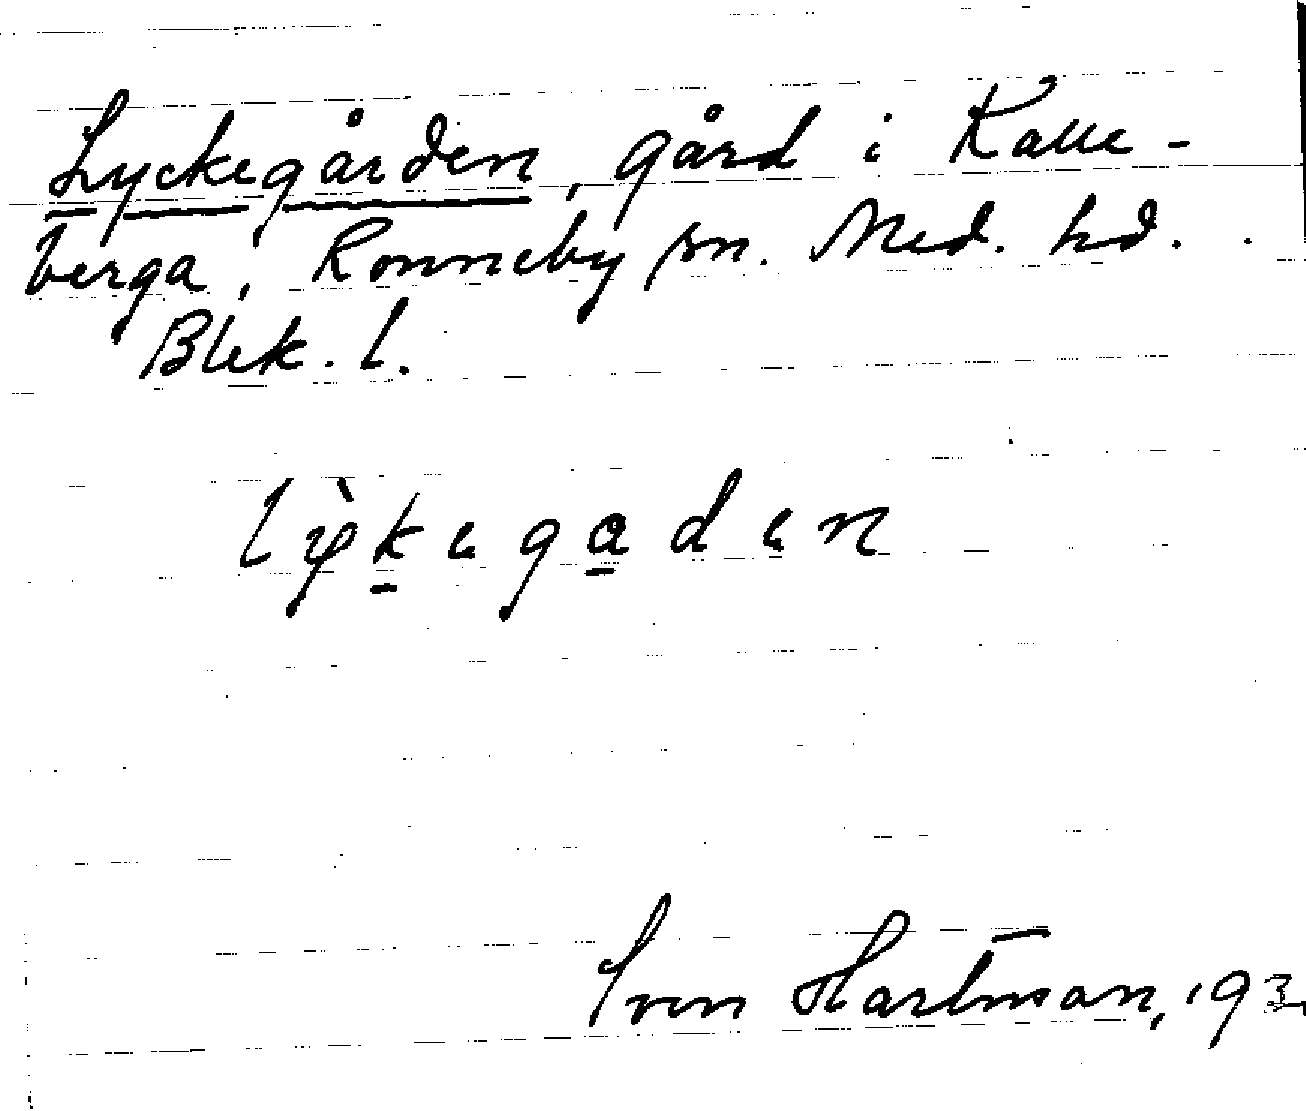 Lyckegården, gård i Kalle-
berga, Ronneby sn. Med. hd.
Blek. l.
lỳkegaden
Sven Hartman, 193